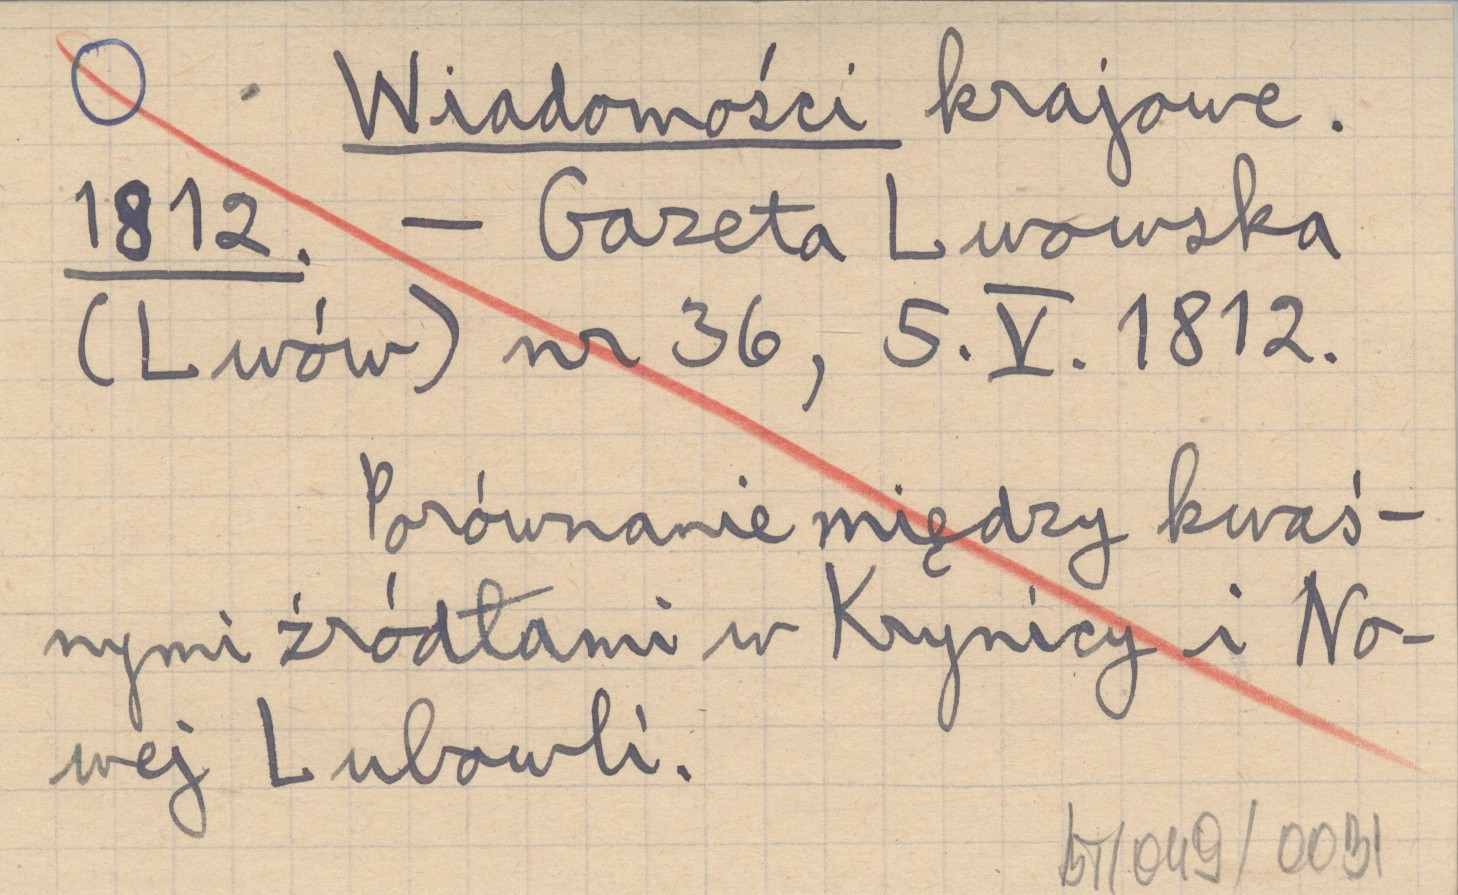 Wiadomości krajowe.
1812. – Gazeta Lwowska
(Lwów) nr 36, 5.V.1812.
Porównanie między kwaś-
nymi źródłami w Krynicy i No-
wej Lubowli.
/049/0031